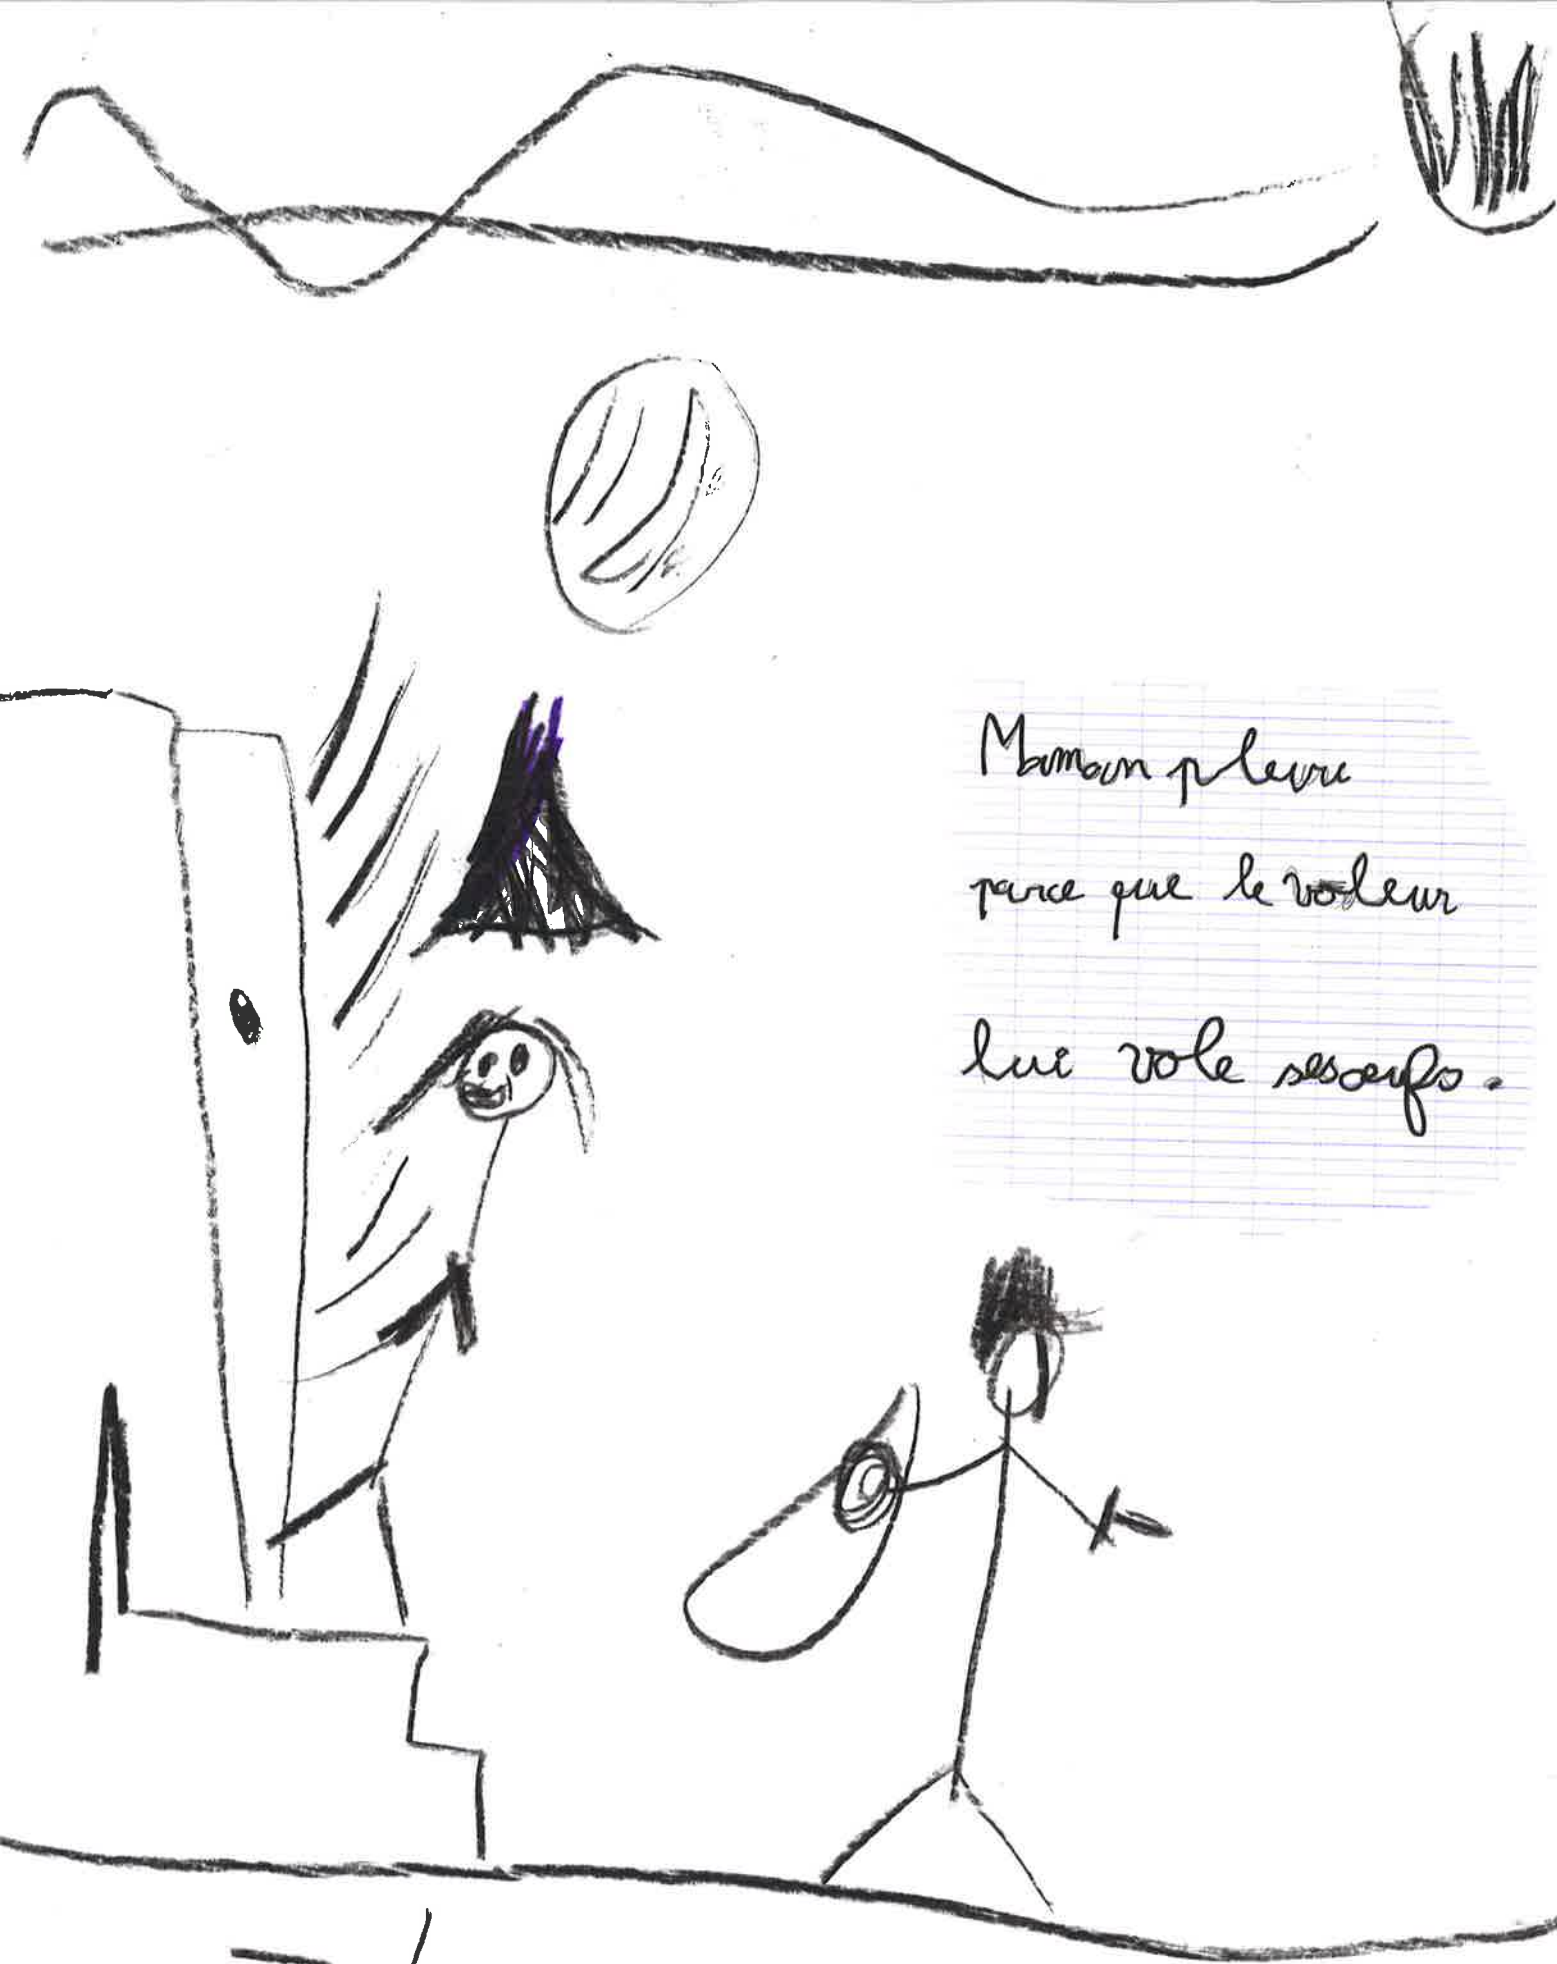 Maman pleure
parce que le voleur
lui vole sesoeufs.